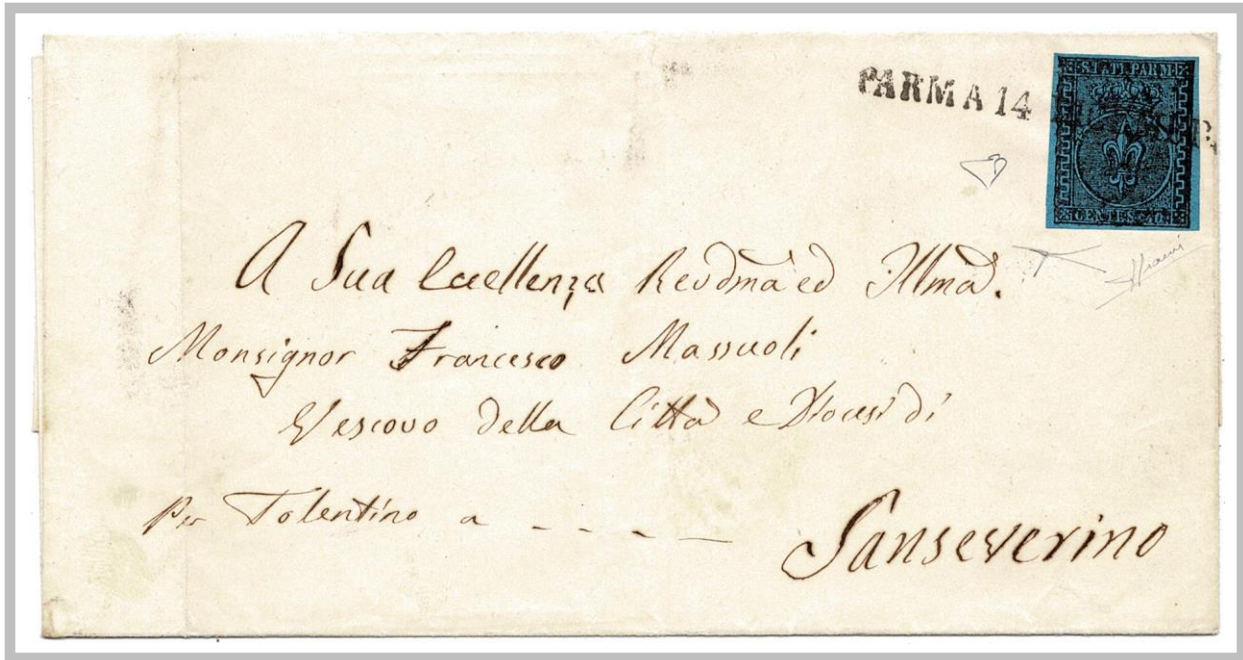 PARMA 14
STATI PARM.
CENTES. 40.
A Sua Eccellenza Revdma ed Illma.
Monsignor Francesco Massuoli
Vescovo della Città e Diocesi di
Per Tolentino a - - - - -
Sanseverino